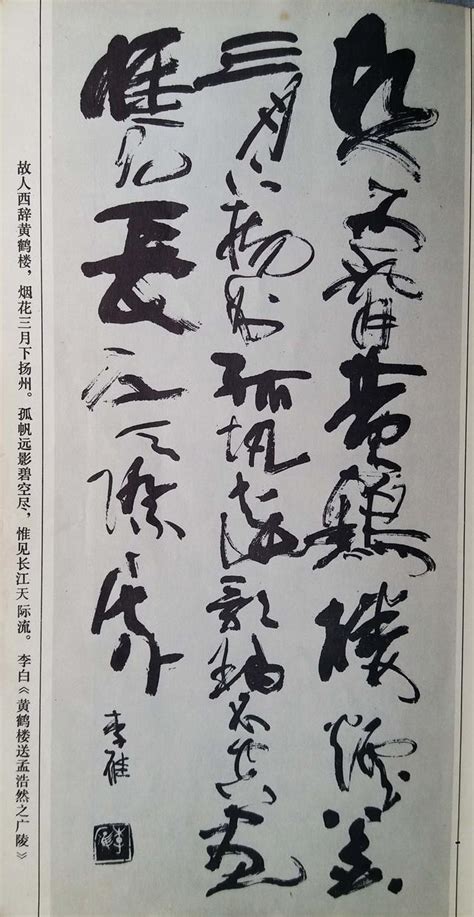 故人西辭黃鶴樓煙花
三月下揚州孤帆遠影碧空盡
惟見長江天際流
李雁
故人西辞黄鹤楼，烟花三月下扬州。孤帆远影碧空尽，惟见长江天际流。 李白《黄鹤楼送孟浩然之广陵》